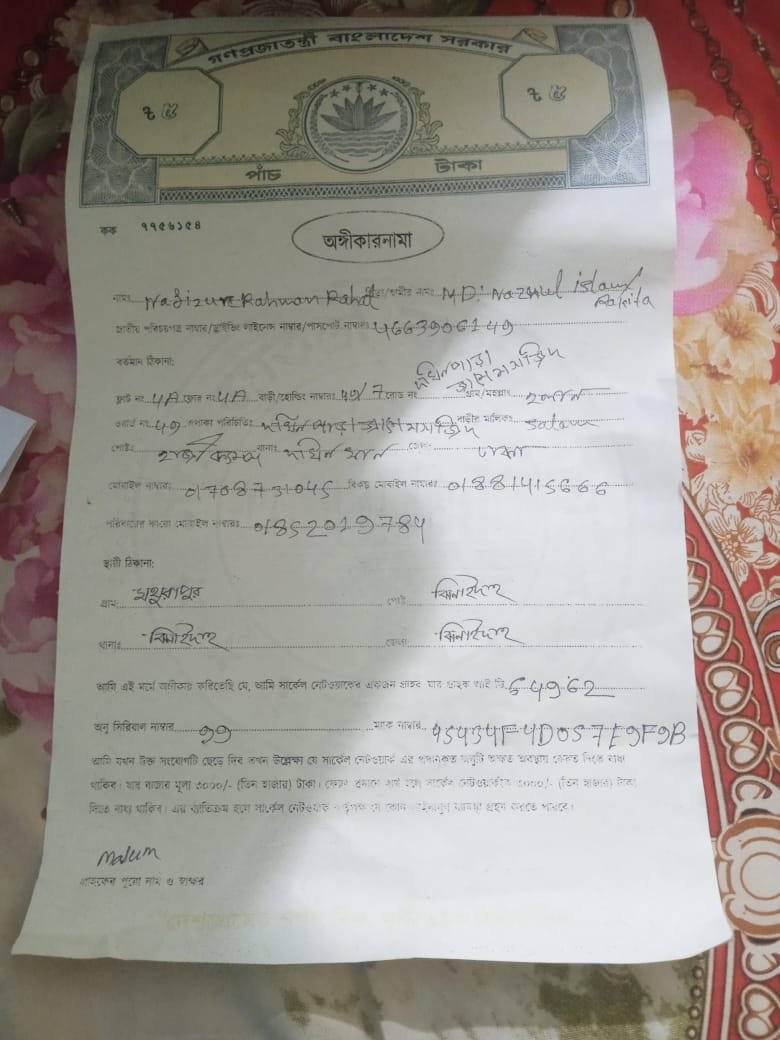 গণপ্রজাতন্ত্রী বাংলাদেশ সরকার
৳ ৫ ৳ ৫
পাঁচ টাকা
কক ৭৭৫৬১৫৪
অঙ্গীকারনামা
নামঃ Nafizur Rahman Rahat পিতা/স্বামীর নামঃ MD: Nazrul islam
জাতীয় পরিচয়পত্র নাম্বার/ড্রাইভিং লাইসেন্স নাম্বার/পাসপোর্ট নাম্বারঃ
বর্তমান ঠিকানা:
দক্ষিনপাড়া
জামে মসজিদ
ফ্লাট নং 4A ফ্লোর নং 4A বাড়ী/হোল্ডিং নাম্বারঃ 49/7 রোড নং গ্রাম/মহল্লাঃ
ওয়ার্ড নং 49 এলাকা পরিচিতিঃ দক্ষিন পাড়া জামে মসজিদ বাড়ীর মালিকঃ
পোষ্টঃ থানাঃ দক্ষিন খান জেলাঃ ঢাকা
মোবাইল নাম্বারঃ 01708731045 বিকল্প মোবাইল নাম্বারঃ 01881415666
পরিবারের কারো মোবাইল নাম্বারঃ 01852019784
স্থায়ী ঠিকানা:
গ্রামঃ মথুরাপুর পোষ্টঃ ঝিনাইদাহ
থানাঃ ঝিনাইদাহ জেলাঃ ঝিনাইদাহ
আমি এই মর্মে অঙ্গীকার করিতেছি যে, আমি সার্কেল নেটওয়াকের একজন গ্রাহক যার গ্রাহক আই ডি 54962
অনু সিরিয়াল নাম্বার 99 ম্যাক নাম্বার
আমি যখন উক্ত সংযোগটি ছেড়ে দিব তখন উল্লেক্ষ্য যে সার্কেল নেটওয়ার্ক এর প্রদানকৃত অনুটি অক্ষত অবস্থায় ফেরত দিতে বাধ্য
থাকিব। যার বাজার মূল্য ৩০০০/- (তিন হাজার) টাকা। ফেরত প্রদানে ব্যর্থ হলে সার্কেল নেটওয়ার্ককে ৩০০০/- (তিন হাজার) টাকা
দিতে বাধ্য থাকিব। এর ব্যতিক্রম হলে সার্কেল নেটওয়ার্ক কর্তৃপক্ষ যে কোন আইনানুগ ব্যবস্থা গ্রহন করতে পারবে।
গ্রাহকের পুরো নাম ও স্বাক্ষর